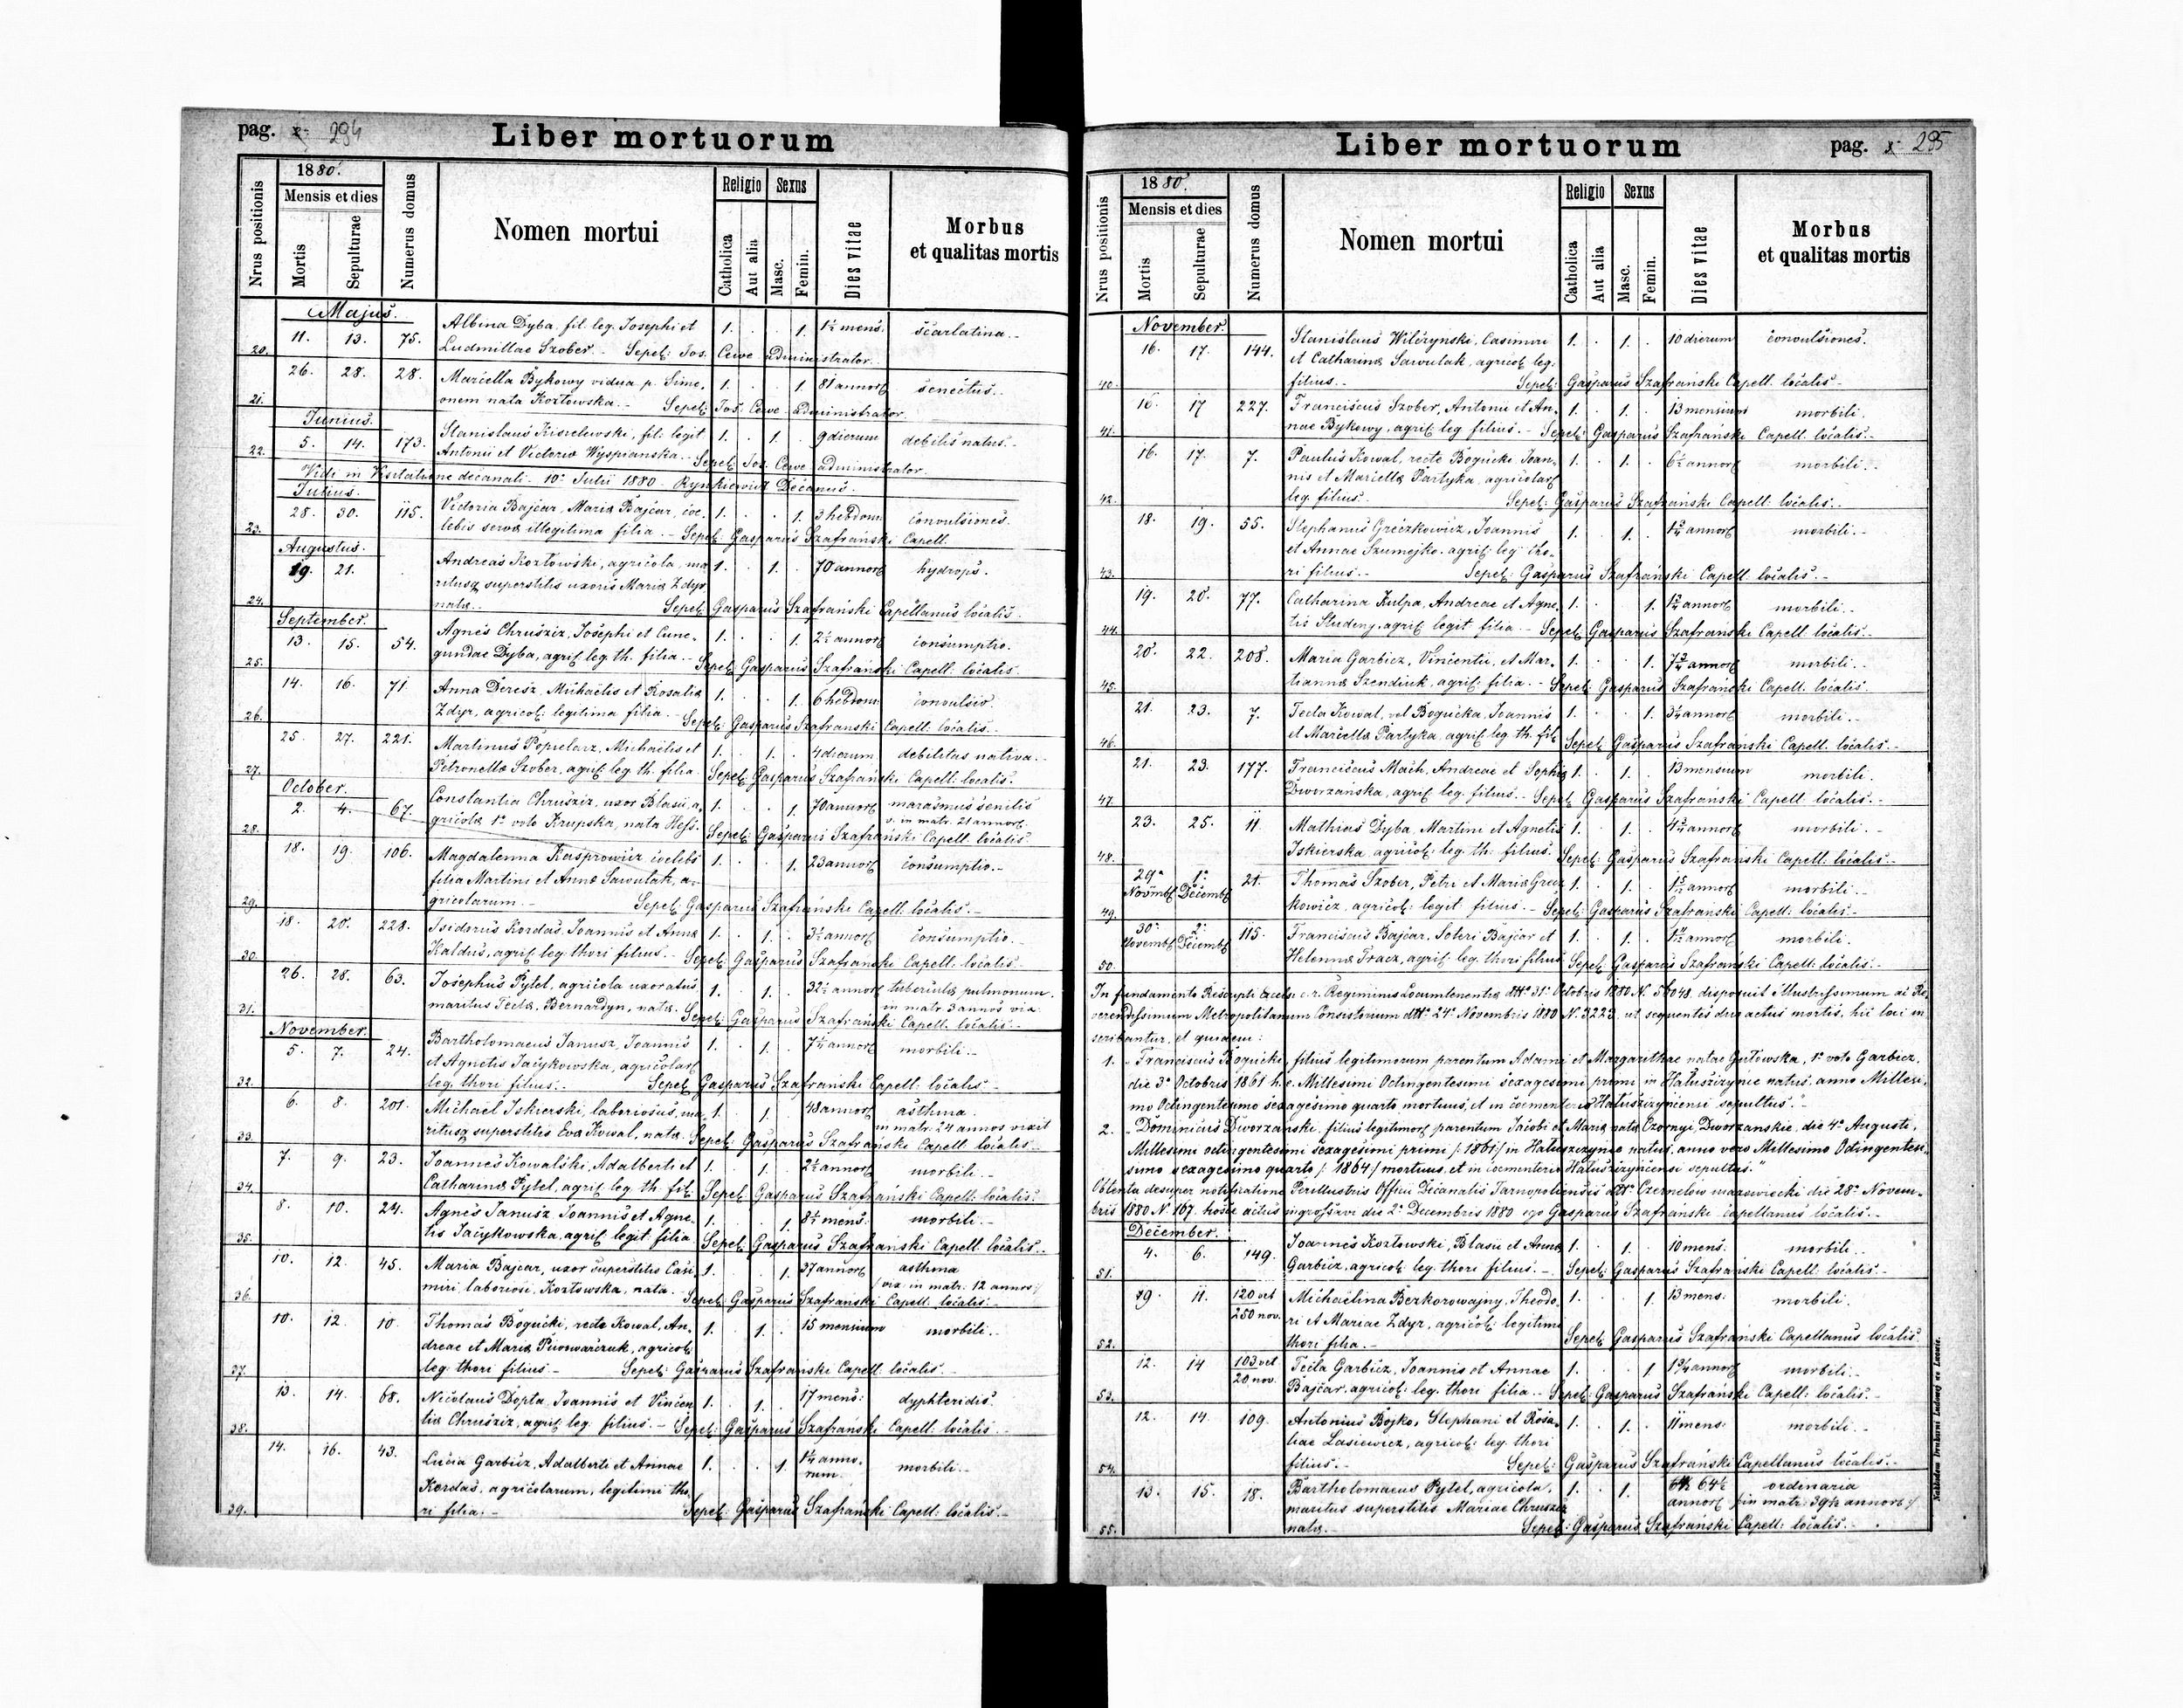 pag. 294
Liber mortuorum
Nrus positionis
1880.
Mensis et dies
Mortis
Sepulturae
Numerus domus
Nomen mortui
Religio
Catholica
Aut alia
Sexus
Masc.
Femin.
Dies vitae
Morbus
et qualitas mortis
Majus.
11. 13. 75. Albina Dyba, fil. leg. Josephi et 1. 1. 1½ mens. scarlatina.
20. Ludmillae Szober. Sepel: Jos. Cewe administrator.
26. 28. 28. Marcella Bykowy vidua p. Sime- 1. 1. 81 annor. senectus.
21. onem nata Kozłowska. Sepel: Jos. Cewe administrator.
Junius.
5. 14. 173. Stanislaus Kisielewski, fil: legit 1. 1. 9 dierum debilis natus.
22. Antonii et Victoria Wyspianska. Sepel: Jos. Cewe administrator.
Vidi in Visitatione decanali. 10ª Julii 1880. Rynkiewicz Decanus.
Julius.
28. 30. 115. Victoria Bajcar, Maria Bajcar, coe- 1. 1. 3 hebdom. convulsiones.
23. lebis serva illegitima filia. Sepel: Gasparus Szafrański Capell.
Augustus.
19. 21. Andreas Kozłowski, agricola, ma- 1. 1. 70 annor. hydrops.
ritusq superstitis uxoris Maria Zdyr
24. nata. Sepel: Gasparus Szafrański Capellanus localis.
September.
13. 15. 54. Agnes Chrusziz, Josephi et Cune- 1. 1. 2½ annor. consumptio.
25. gundae Dyba, agric. leg. th. filia. Sepel: Gasparus Szafrański Capell. localis.
14. 16. 71. Anna Deresz, Michaelis et Rosalia 1. 1. 6 hebdom. convulsio.
26. Zdyr, agricol: legitima filia. Sepel: Gasparus Szafranski Capell. localis.
25. 27. 221. Martinus Popielarz, Michaelis et 1. 1. 4 dierum debilitas nativa.
27. Petronella Szober, agric. leg. th. filia Sepel: Gasparus Szafrański Capell. localis.
October.
2. 4. 67. Constantia Chrusziz, uxor Blasii, a- 1. 1. 70 annor. marasmus senilis
v. in matr. 21 annor.
28. gricola 1º voto Krupska, nata Hess. Sepel: Gasparus Szafrański Capell. localis
18. 19. 106. Magdalenna Kasprowicz coelebs 1. 1. 23 annor. consumptio.
filia Martini et Anna Sawulak, a-
29. gricolarum. Sepel: Gasparus Szafrański Capell. localis.
18. 20. 228. Isidorus Kordas, Joannis et Anna 1. 1. 3½ annor. consumptio.
30. Kaldus, agric. leg. thori filius. Sepel: Gasparus Szafrański Capell. localis.
26. 28. 63. Josephus Pytel, agricola uxoratus 1. 1. 32½ annor. tubercula pulmonum.
in matr 3 annos vix.
31. maritus Tecla, Bernardyn, nata. Sepel: Gasparus Szafrański Capell. localis.
November.
5. 7. 24. Bartholomaeus Janusz, Joannis 1. 1. morbili.
et Agnetis Jacykowska, agricolar.
32. leg. thori filius. Sepel: Gasparus Szafrański Capell. localis.
6. 8. 201. Michael Iskierski, laboriosus, ma- 1. 1. 48 annor. asthma.
in matr. 24 annos vixit
33. ritusq superstitis Eva Kowal, nata. Sepel: Gasparus Szafrański Capell. localis.
7. 9. 23. Joannes Kowalski, Adalberti et 1. 1. 2½ annor. morbili.
34. Catharina Pytel, agric. leg. th. fil. Sepel: Gasparus Szafrański Capell. localis.
8. 10. 24. Agnes Janusz Joannis et Agne- 1. 1. 8½ mens. morbili.
35. tis Jacykowska, agric. legit. filia Sepel: Gasparus Szafrański Capell. localis.
10. 12. 45. Maria Bajcar, uxor superstitis Casi- 1. 1. 37 annor. asthma
/vix. in matr. 12 annos/
36. miri laboriosi, Kozłowska, nata. Sepel: Gasparus Szafranski Capell. localis.
10. 12. 10. Thomas Bogucki, recte Kowal, An- 1. 1. 15 mensium morbili.
dreae et Maria Piwowarczuk, agricol.
37. leg. thori filius. Sepel: Gasparus Szafrański Capell. localis.
13. 14. 68. Nicolaus Dopta, Joannis et Vincen- 1. 1. 17 mens. dyphteridis.
38. tia Chrusziz, agric. leg. filius. Sepel: Gasparus Szafrański Capell. localis.
14. 16. 43. Lucia Garbicz, Adalberti et Annae 1. 1. annorum. morbili.
Kordas, agricolarum, legitimi tho-
39. ri filia. Sepel: Gasparus Szafrański Capell. localis.
Liber mortuorum
pag. 295
Nrus positionis
1880.
Mensis et dies
Mortis
Sepulturae
Numerus domus
Nomen mortui
Religio
Catholica
Aut alia
Sexus
Masc.
Femin.
Dies vitae
Morbus
et qualitas mortis
November.
16. 17. 144. Stanislaus Wilczynski, Casimiri 1. 1. 10 dierum convulsiones.
et Catharina Sawulak, agricol. leg.
40. filius. Sepel: Gasparus Szafrański Capell. localis.
16. 17 227. Franciscus Szober, Antonii et An- 1. 1. 13 mensium morbili.
41. nae Bykowy, agric. leg. filius. Sepel: Gasparus Szafrański Capell. localis.
16. 17. 7. Paulus Kowal, recte Bogucki Joan- 1. 1. 6½ annor. morbili.
nis et Marcella Partyka, agricolar.
42. leg. filius. Sepel: Gasparus Szafrański Capell. localis.
18. 19. 55. Stephanus Greczkowicz, Joannis 1. 1. annor. morbili.
et Annae Szumejko, agric. leg. tho-
43. ri filius. Sepel: Gasparus Szafrański Capell. localis.
19. 20. 77. Catharina Kulpa, Andreae et Agne- 1. 1. annor. morbili.
44. tis Studeny, agric. legit. filia. Sepel: Gasparus Szafrański Capell. localis.
20. 22. 208. Maria Garbicz, Vincentii, et Mar- 1. 1. 7¾ annor. morbili.
45. tianna Szendiuk, agric. filia. Sepel: Gasparus Szafranski Capell. localis.
21. 23. 7. Tecla Kowal, vel Bogucka, Joannis 1. 1. annor. morbili.
46. et Marcella Partyka agric. leg. th. fil. Sepel: Gasparus Szafrański Capell. localis.
21. 23. 177. Franciscus Mach, Andreae et Sophia 1. 1. 13 mensium morbili.
47. Dworzańska, agric. leg. filius. Sepel: Gasparus Szafrański Capell. localis.
23. 25. 11. Mathias Dyba, Martini et Agnetis 1. 1. annor. morbili.
48. Iskierska agricol: leg. th. filius. Sepel: Gasparus Szafrański Capell. localis.
29ª Novembr. 1ª Decembr. 21. Thomas Szober, Petri et Maria Grecz- 1. 1. annor. morbili.
49. kowicz, agricol: legit. filius. Sepel: Gasparus Szafrański Capell. localis.
30ª Novembr. 2ª Decembr. 115. Franciscus Bajcar, Soteri Bajcar et 1. 1. annor. morbili.
50. Helenna Tracz, agric. leg. thori filius Sepel: Gasparus Szafrański Capell. localis.
In fundamento Rescripti Excels. c. r. Regiminis Locumtenentia ddtº 31ª Octobris 1880 N. 56048. disposuit Illustrissimum ac Re-
verendissimum Metropolitanum Consistorium ddtº 24ª Novembris 1880 N. 3223. ut sequentes duo actus mortis, hic loci in
scribantur, et quidem:
1. „Franciscus Bogucki, filius legitimorum parentum Adami et Margarithae natae Gutowska, 1º voto Garbicz,
die 3ª Octobris 1861 h. e. Millesimi Octingentesimi sexagesimi primi in Hałuszczyńce natus, anno Millesi-
mo Octingentesimo sexagesimo quarto mortuus, et in coementerio Hałuszczyńcensi sepultus."
2. „Dominicus Dworzański, filius legitimor. parentum Jacobi et Maria nata Czornyi, Dworzanskie, die 4ª Augusti,
Millesimi octingentesimi sexagesimi primi /: 1861 :/ in Hałuszczyńce natus, anno vero Millesimo Octingentesi-
simo sexagesimo quarto /: 1864 :/ mortuus, et in coementerio Hałuszczyńcensi sepultus."
Obtenta desuper notificatione Perillustris Officii Decanalis Tarnopoliensis ddtº Czernelów mazowiecki die 28ª Novem-
bris 1880 N 167. hosce actus ingrossavi die 2ª Decembris 1880 ego Gasparus Szafranski capellanus localis.
December.
4. 6. 149. Joannes Kozłowski, Blasii et Anna 1. 1. 10 mens. morbili.
51. Garbicz, agricol. leg. thori filius. Sepel: Gasparus Szafrański Capell. localis.
9. 11. 120 vet. 250 nov. Michaelina Bezkorowajny, Theodo- 1. 1. 13 mens. morbili.
ri et Mariae Zdyr, agricol: legitimi
52. thori filia. Sepel: Gasparus Szafrański Capellanus localis.
12. 14 103 vet 20 nov. Tecla Garbicz, Joannis et Annae 1. 1. annor. morbili.
53. Bajcar, agricol: leg. thori filia. Sepel: Gasparus Szafrański Capell. localis.
12. 14. 109. Antonius Bojko, Stephani et Rosa- 1. 1. 11 mens. morbili.
liae Lasiewicz, agricol: leg. thori
54. filius. Sepel: Gasparus Szafrański Capellanus localis.
13. 15. 18. Bartholomaeus Pytel, agricola, 1. 1. 64½ annor. ordinaria
maritus superstitis Mariae Chrusziz /in matr. 39½ annor./
55. nata. Sepel: Gasparus Szafrański Capell. localis.
Nakładem Drukarni Ludowej we Lwowie.